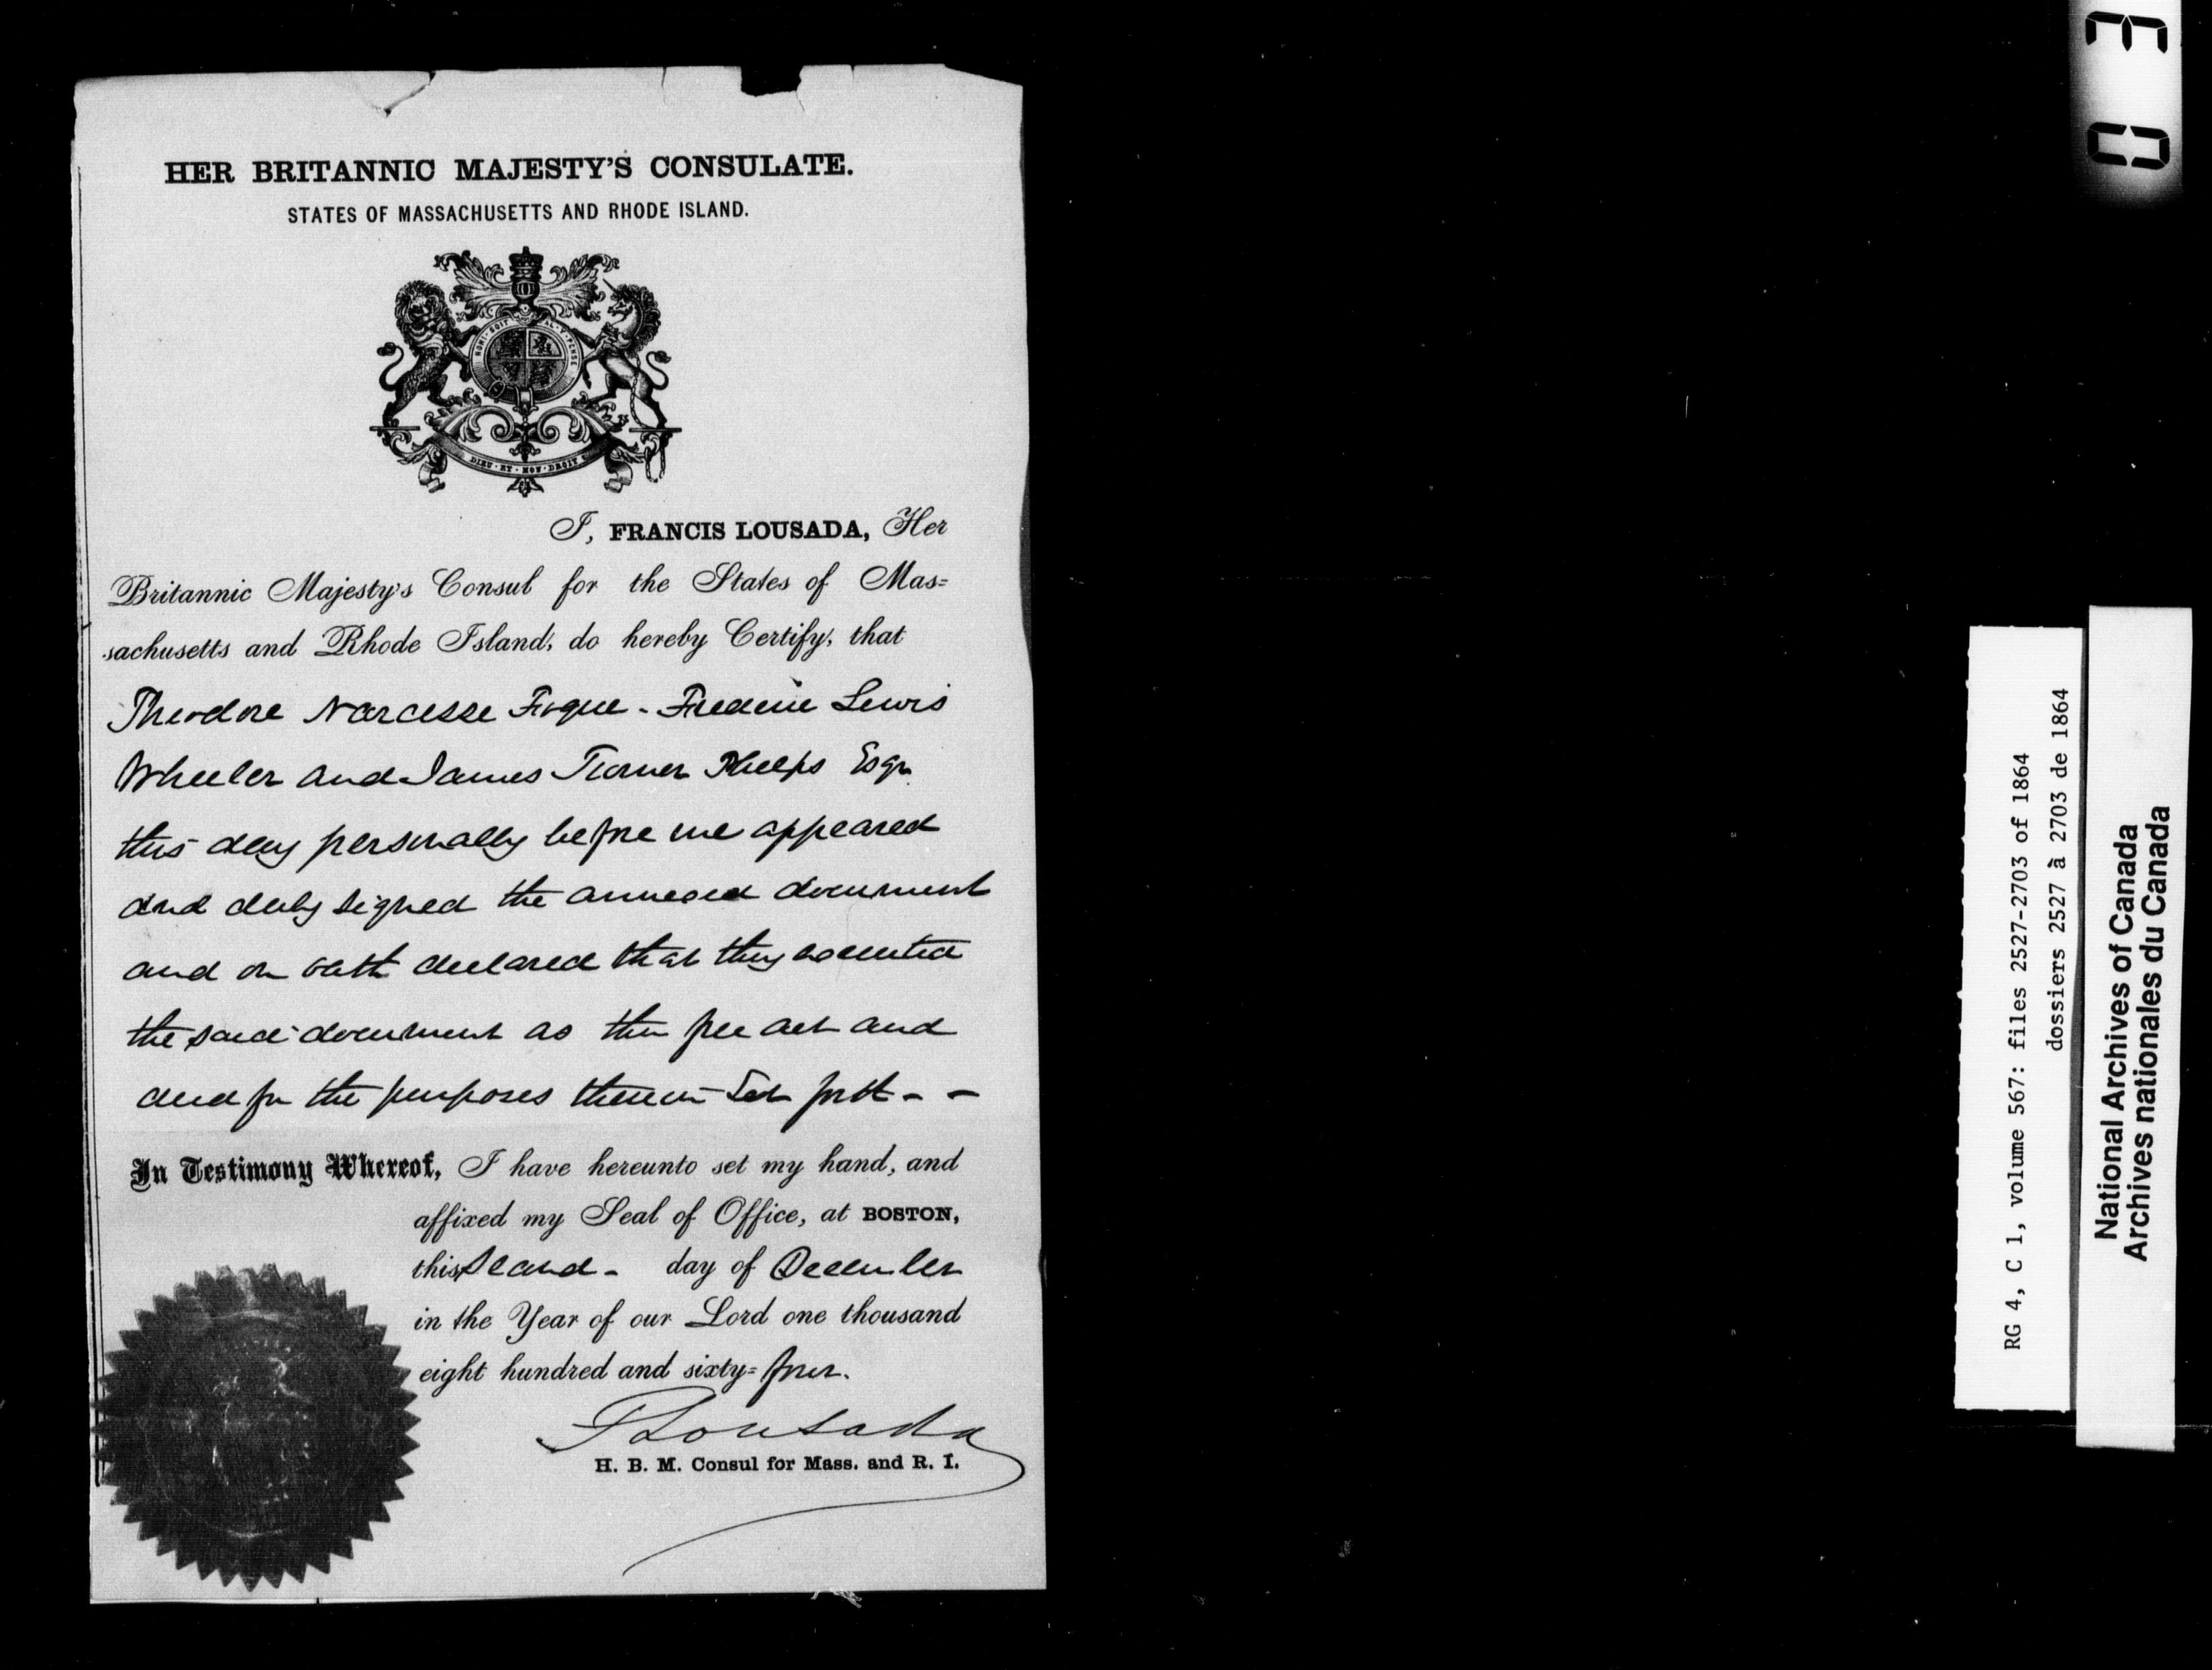 HER BRITANNIC MAJESTY'S CONSULATE.
STATES OF MASSACHUSETTS AND RHODE ISLAND.
HONI · SOIT · Y · PENSE
DIEU · ET · MON · DROIT
I, FRANCIS LOUSADA, Her
Britannic Majesty's Consul for the States of Mas=
sachusetts and Rhode Island, do hereby Certify, that
Theodore Narcisse Fogue - Frederic Lewis
Wheeler and James Turner Phelps Esqr
this day personally before me appeared
and duly signed the annexed document
and on oath declared that they executed
the said document as their free act and
deed for the purposes therein Set forth - -
In Testimony Whereof, I have hereunto set my hand, and
affixed my Seal of Office, at BOSTON,
this Second - day of December
in the Year of our Lord one thousand
eight hundred and sixty= four.
F Lousada
H. B. M. Consul for Mass. and R. I.
RG 4, C 1, volume 567: files 2527-2703 of 1864
dossiers 2527 à 2703 de 1864
National Archives of Canada
Archives nationales du Canada